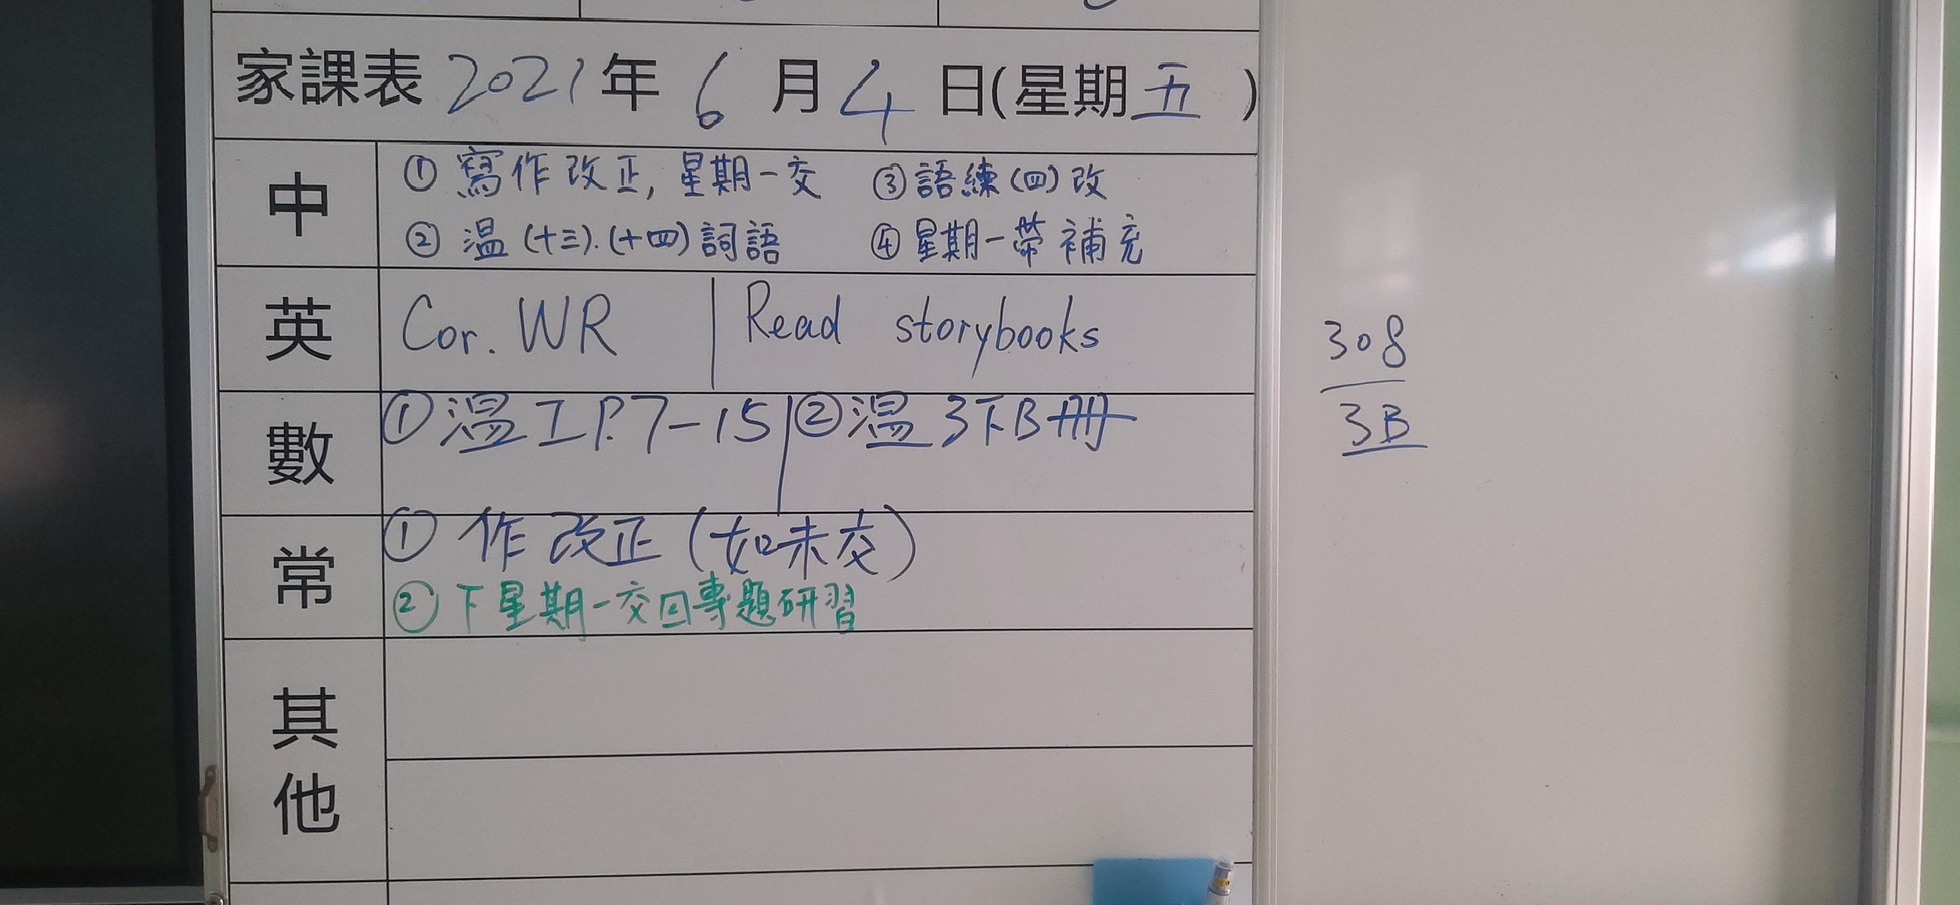 家課表 2021年 6月 4日(星期五)
中
① 寫作改正, 星期一交 ③ 語練(四)改
② 温(十三).(十四)詞語 ④ 星期一帶補充
英
Cor. WR | Read storybooks
數
① 温工P.7-15 | ② 温3下B冊
常
① 作改正(如未交)
② 下星期一交回專題研習
其他
308
3B